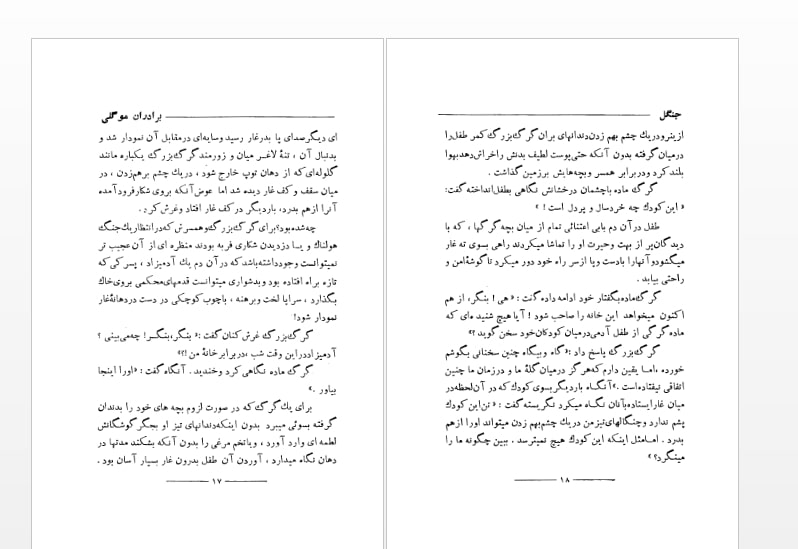 برادران موگلی
ای دیگر صدای پا بدر غار رسید و سایه‌ای در مقابل آن نمودار شد و
بدنبال آن ، تنهٔ لاغر میان و زورمند گرگ بزرگ یکباره مانند
گلوله‌ای که از دهان توپ خارج شود ، در یك چشم برهم زدن ، در
میان سقف و کف غار دیده شد اما عوض آنکه بروی شکار فرود آمده
آنرا از هم بدرد، بار دیگر در کف غار افتاد و غرش کرد .
چه شده بود؟ برای گرگ بزرگ و همسرش که در انتظار یك جنگ
هولناك و یـا دزدیدن شکاری فربه بودند منظره ای از آن عجیب تر
نمیتوانست وجود داشته باشد که در آن دم یك آدمیزاد ، پسر کی که
تازه براه افتاده بود و بدشواری میتوانست قدمهای محکمی بروی خاك
بگذارد ، سراپا لخت و برهنه ، با چوب کوچکی در دست در دهانهٔ غار
نمودار شود!
گرگ بزرگ غرش کنان گفت :« بنگر، بنگـر! چه می بینی ؟
آدمیزاد در این وقت شب ،در برابر خانهٔ من !؟»
گرگ ماده نگاهی کرد و خندید . آنگاه گفت : «او را اینجا
بیاور .»
برای یك گرگ که در صورت لزوم بچه های خود را بدندان
گرفته بسوئی میبرد بدون اینکه دندانهای تیز او بجگر گوشگانش
لطمه ای وارد آورد ، و یا تخم مرغی را بدون آنکه بشکند مدتها در
دهان نگاه میدارد ، آوردن آن طفل بدرون غار بسیار آسان بود .
۱۷
جنگل
از ینرو در یك چشم بهم زدن دندانهای بران گرگ بزرگ کمر طفل را
در میان گرفته بدون آنکه حتی پوست لطیف بدنش را خراش دهد بهوا
بلند کرد و در برابر همسر و بچه‌هایش بر زمین گذاشت .
گرگ ماده با چشمان درخشانش نگاهی بطفل انداخته گفت:
« این کودك چه خردسال و پردل است ! »
طفل در آن دم با بی اعتنائی تمام از میان بچه گرگها ، که با
دیدگان پر از بهت و حیرت او را تماشا میکردند راهی بسوی ته غار
میگشود و آنها را با دست و پا از سر راه خود دور میکرد تا گوشهٔ امن و
راحتی بیابد .
گرگ ماده بگفتار خود ادامه داده گفت : « هی ! بنگر، از هم
اکنون میخواهد این خانه را صاحب شود ! آیا هیچ شنیده ‌ای که
ماده گرگی از طفل آدمی در میان کودکان خود سخن گوید ؟»
گرگ بزرگ پاسخ داد :« گاه و بیگاه چنین سخنانی بگوشم
خورده ،امـا یقین دارم که هر گز در میان گلهٔ ما و در زمان ما چنین
اتفاقی نیفتاده است .» آنگـاه بار دیگر بسوی کودك که در آن لحظه در
میان غار ایستاده با آنان نگـاه میکرد نگریسته گفت : « تن این کودك
پشم ندارد و چنگالهای تیز من در یك چشم بهم زدن میتواند او را از هم
بدرد . امـا مثل اینکه این کودك هیچ نمیترسد . ببین چگونه ما را
مینگرد؟ »
۱۸